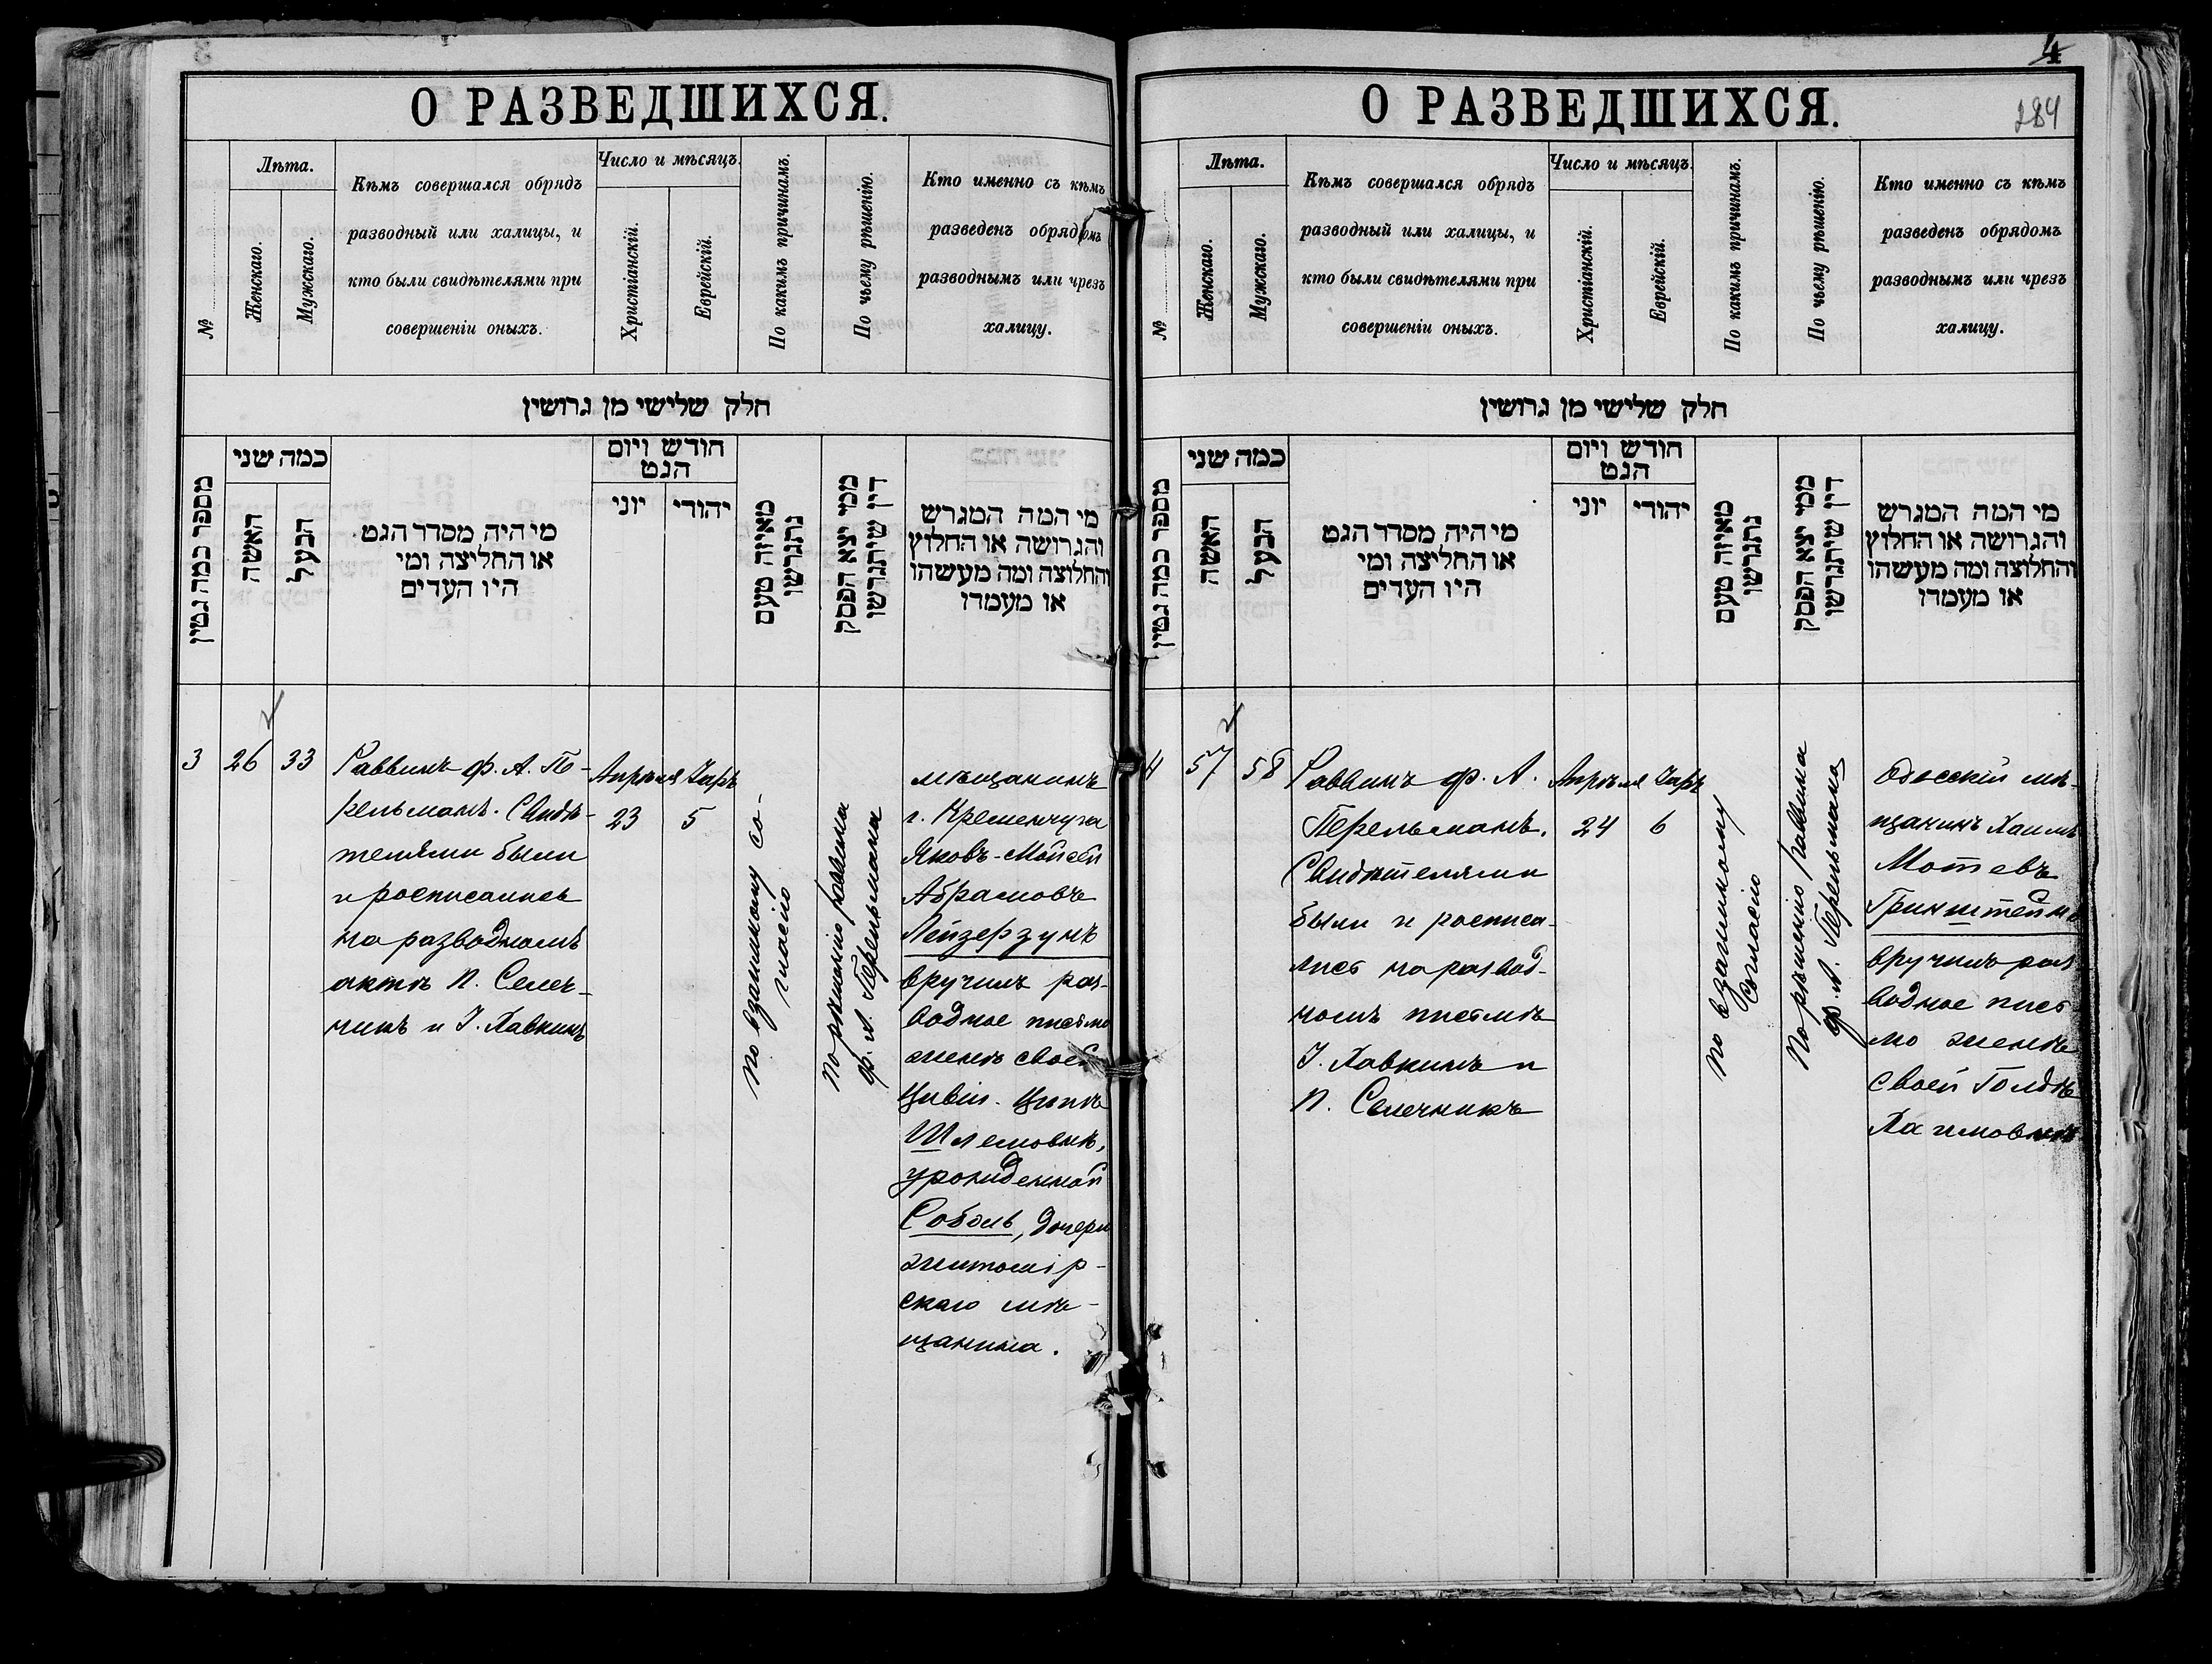 О РАЗВЕДШИХСЯ.
№
Лѣта.
Женскаго.
Мужскаго.
Кѣмъ совершался обрядъ
разводный или халицы, и
кто были свидѣтелями при
совершеніи оныхъ.
Число и мѣсяцъ.
Христіанскій.
Еврейскій.
По какимъ причинамъ.
По чьему рѣшенію.
Кто именно съ кѣмъ
разведенъ обрядомъ
разводнымъ или чрезъ
халицу.
חלק שלישי מן גרושין
מספר כמה גטין
כמה שני
האשה
הבעל
מי היה מסדר הגט
או החליצה ומי
היו העדים
חודש ויום
הגט
יוני
יהודי
מאיזה טעם
נתגרשו
ממי יצא הפסק
דין שיתגרשו
מי המה המגרש
והגרושה או החלוץ
והחלוצה ומה מעשהו
או מעמדו
3
26
33
Раввинъ ф. А. Пе-
рельманъ. Свидѣ-
телями были
и росписались
на разводномъ
актѣ П. Селеч-
никъ и І. Хавкинъ
Апрѣля
23
Іаръ
5
По взаимному со-
гласію
По рѣшенію раввина
ф. А. Перельмана
мѣщанинъ
г. Кременчуга
Яковъ-Мойсей
Абрамовъ
Лейзерзунъ
вручилъ раз-
водное письмо
женѣ своей
Цивіи-Ципѣ
Шлемовнѣ,
урожденной
Соболь, дочери
житомір-
скаго мѣ-
щанина.
4
284
О РАЗВЕДШИХСЯ.
№
Лѣта.
Женскаго.
Мужскаго.
Кѣмъ совершался обрядъ
разводный или халицы, и
кто были свидѣтелями при
совершеніи оныхъ.
Число и мѣсяцъ.
Христіанскій.
Еврейскій.
По какимъ причинамъ.
По чьему рѣшенію.
Кто именно съ кѣмъ
разведенъ обрядомъ
разводнымъ или чрезъ
халицу.
חלק שלישי מן גרושין
מספר כמה גטין
כמה שני
האשה
הבעל
מי היה מסדר הגט
או החליצה ומי
היו העדים
חודש ויום
הגט
יוני
יהודי
מאיזה טעם
נתגרשו
ממי יצא הפסק
דין שיתגרשו
מי המה המגרש
והגרושה או החלוץ
והחלוצה ומה מעשהו
או מעמדו
4
57
58
Раввинъ ф. А.
Перельманъ.
Свидѣтелями
были и росписа-
лись на развод-
номъ письмѣ
І. Хавкинъ и
П. Селечникъ
Апрѣля
24
Іаръ
6
По взаимному
согласію
По рѣшенію раввина
ф. А. Перельмана
Одесскій мѣ-
щанинъ Хаимъ
Мотевъ
Гринштейнъ
вручилъ раз-
водное пись-
мо женѣ
своей Голдѣ
Хаимовнѣ